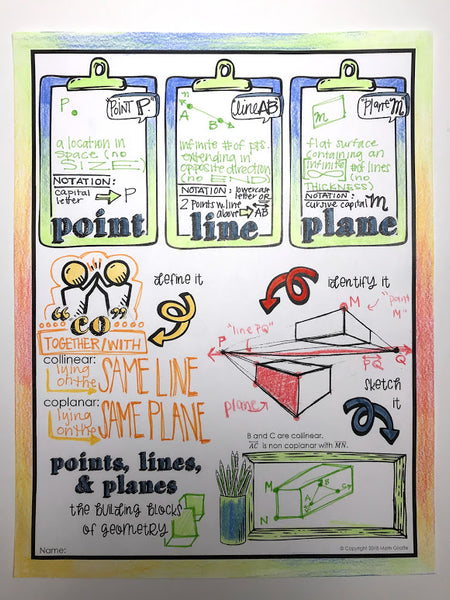 P
POINT P.
a location in
space (no
SIZE)
NOTATION:
capital
letter
P
point
n
A
B
line AB
infinite # of pts.
extending in
opposite direction
(no
NOTATION: lowercase
letter OR
2 Points w/line
above
AB
line
m
"Plane m
flat surface
containing an
infinite
∞ # of lines
(no
THICKNESS)
NOTATION:
cursive capital m
plane
"CO"
TOGETHER/WITH
define it
identify it
collinear:
lying
on the
SAME LINE
coplanar:
lying
on the
SAME PLANE
M
"point
M"
"line PQ"
P
PQ
Q
plane
sketch
it
B and C are collinear.
AC is non coplanar with MN.
points, lines,
& planes
the building blocks
of geometry
M
N
A
B
C
Name:
© Copyright 2018 Math Giraffe